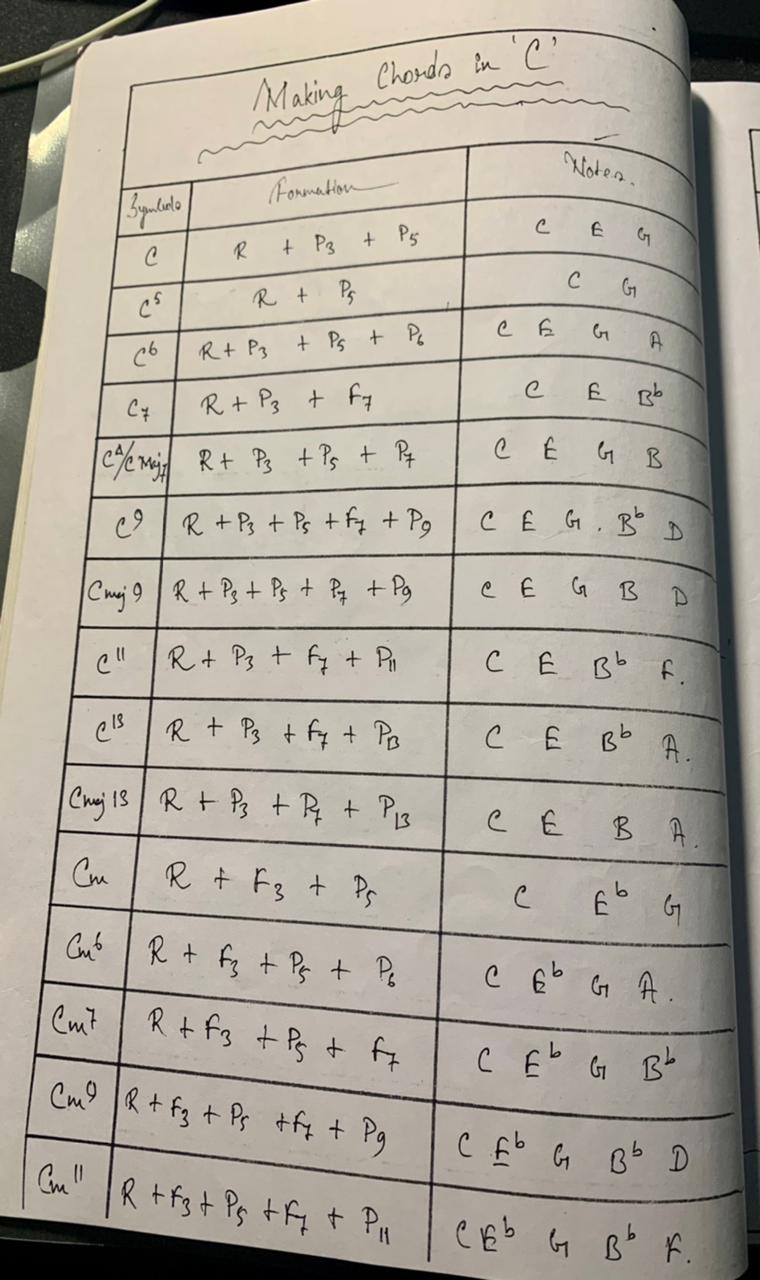 Making Chords in 'C'
Symbols Formation Notes.
C R + P3 + P5 C E G
C5 R + P5 C G
C6 R + P3 + P5 + P6 C E G A
C7 R + P3 + F7 C E Bb
CΔ/C Maj7 R + P3 + P5 + P7 C E G B
C9 R + P3 + P5 + F7 + P9 C E G . Bb D
Cmaj 9 R + P3 + P5 + P7 + P9 C E G B D
C11 R + P3 + F7 + P11 C E Bb F.
C13 R + P3 + F7 + P13 C E Bb A.
Cmaj 13 R + P3 + P7 + P13 C E B A.
Cm R + F3 + P5 C Eb G
Cm6 R + F3 + P5 + P6 C Eb G A.
Cm7 R + F3 + P5 + F7 C Eb G Bb
Cm9 R + F3 + P5 + F7 + P9 C Eb G Bb D
Cm11 R + F3 + P5 + F7 + P11 C Eb G Bb F.